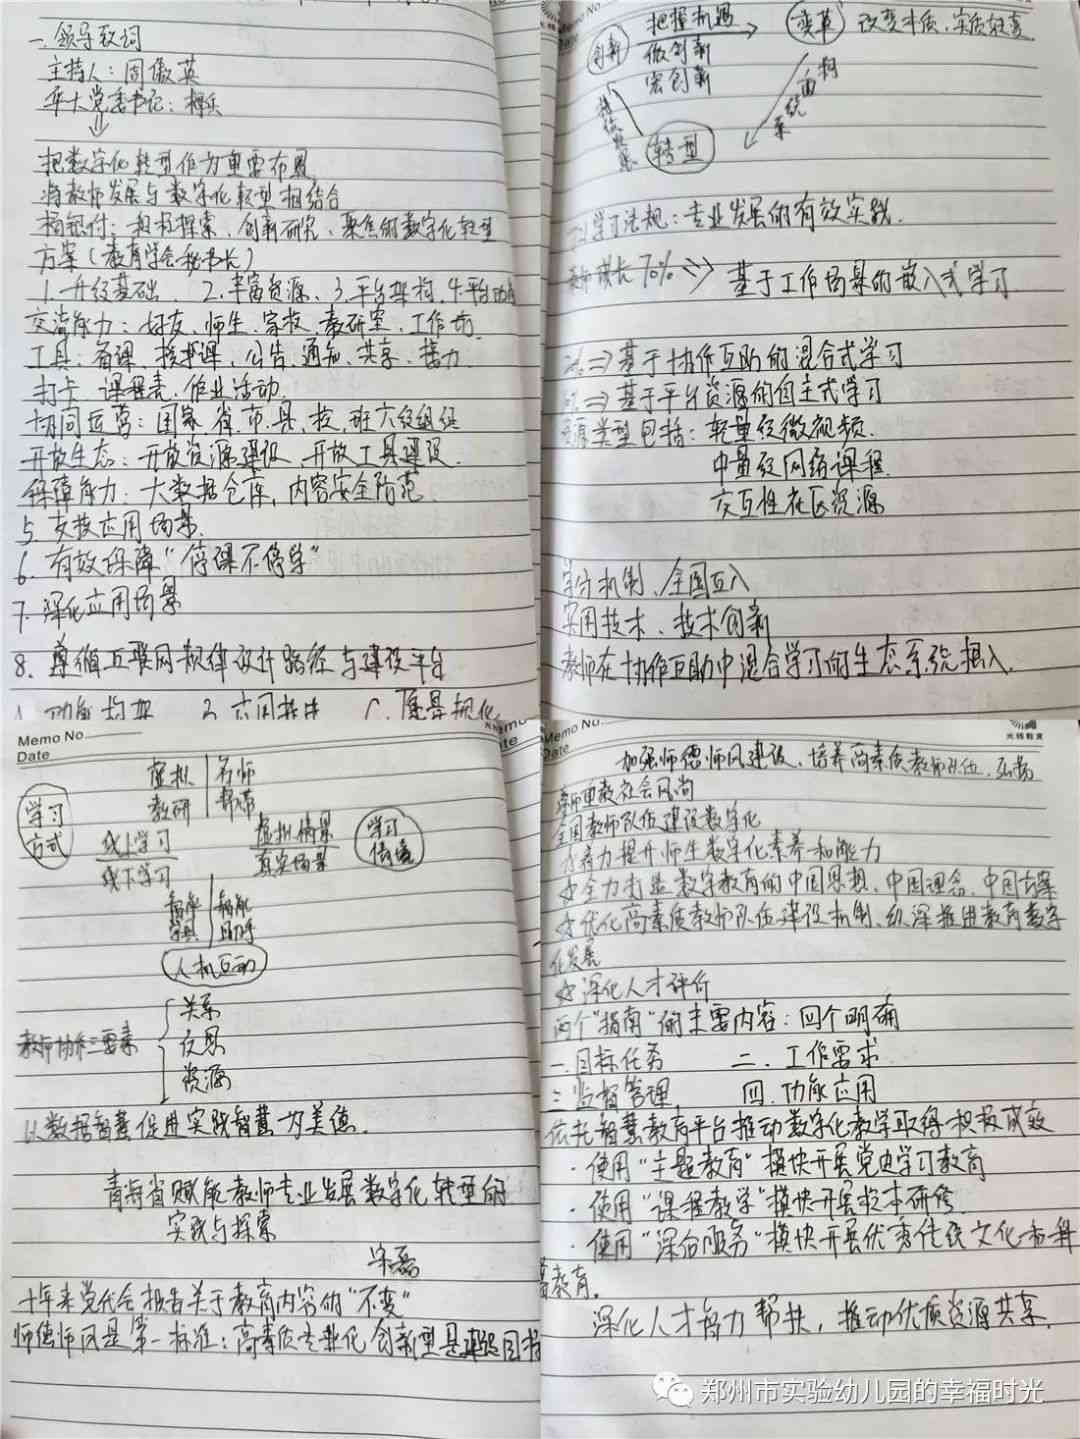 一、领导致词
主持人：周傲英
华大党委书记：梅兵
把数字化转型作为重要布局
将教师发展与数字化转型相结合
杨银付：积极探索、创新研究、聚焦的数字化转型
方案（教育学会秘书长）
1. 升级基础 2. 丰富资源、3. 平台架构、4. 平台功能
交流能力：好友、师生、家校、教研室、工作坊
工具：备课、授课、公告、通知、共享、接力
打卡 课程表、作业活动
协同运营：国家、省、市、县、校、班六级组织
开放生态：开放资源建设、开放工具建设
保障能力：大数据仓库，内容安全防范
5. 支技应用场景
6. 有效保障“停课不停学”
7. 深化应用场景
8. 遵循互联网规律设计路径与建设平台
Memo No
Date
创新
把握机遇
微创新
宏创新
变革
改变本质、实质较变
转型
学习法规：专业发展的有效实践
成长70% 基于工作场景的嵌入式学习
⇒基于协作互助的混合式学习
⇒基于平台资源的自主式学习
类型包括：轻量级微视频
中量级网络课程
交互性社区资源
学分机制、全国互认
实用技术、技术创新
教师在协作互助中混合学习的生态系统
Memo No
Date
学习方式
虚拟教研
名师
线上学习
线下学习
虚拟情景
真实场景
学习情境
智能学具
智能助手
人机互动
教师协作三要素
关系
反思
资源
以数据智慧促进实践智慧为美德
青海省赋能教师专业发展数字化转型的
实践与探索
宋磊
十年来党代会报告关于教育内容的“不变”
师德师风是第一标准：高素质专业化创新型是建设目标
Memo No
Date
加强师德师风建设、培养高素质教师队伍，弘扬
尊师重教社会风尚
全国教师队伍建设数字化
着力提升师生数字化素养和能力
☆全力打造数字教育的中国思想、中国理念、中国方案
☆优化高素质教师队伍建设机制、纵深推进教育数字
化发展
☆深化人才评价
两个“指南”的主要内容：四个明确
一、目标任务 二、工作要求
三、监督管理 四、功能应用
依托智慧教育平台推动数字化教学取得积极成效
·使用“主题教育”模块开展党史学习教育
·使用“课程教学”模块开展校本研修
·使用“课后服务”模块开展优秀传统文化和科
普教育
深化人才智力帮扶，推动优质资源共享
郑州市实验幼儿园的幸福时光